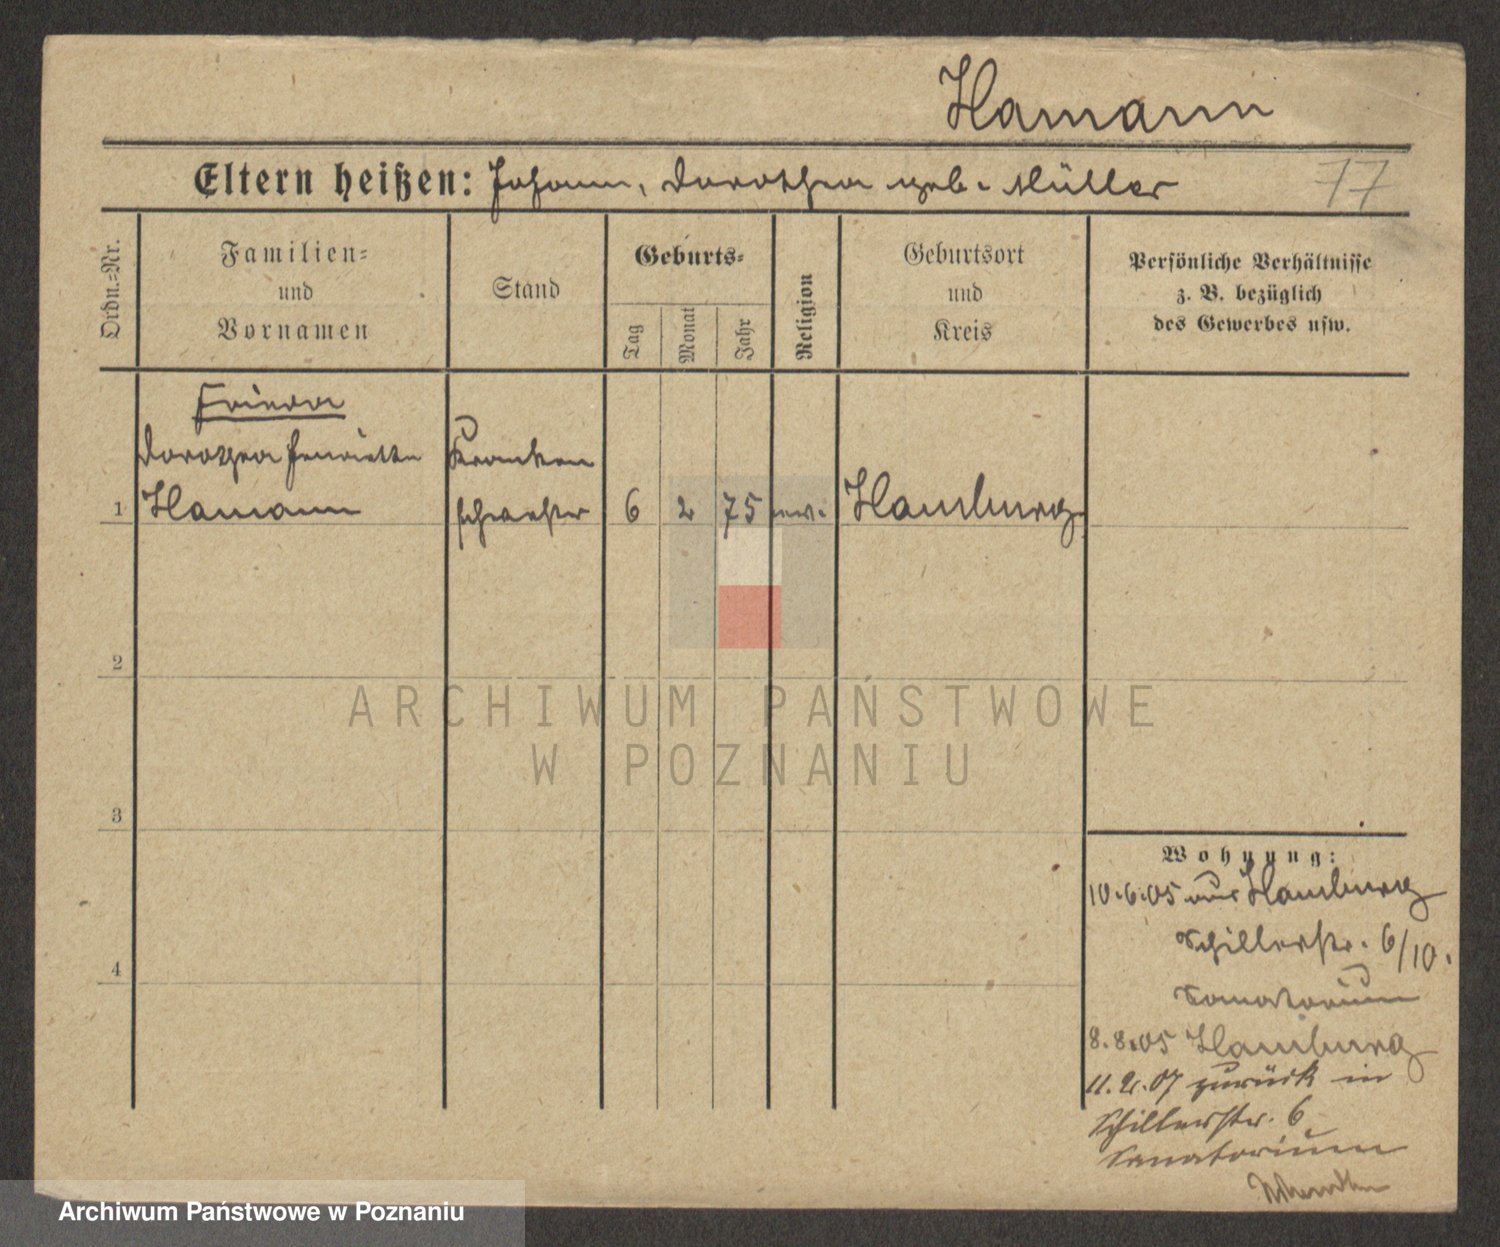 Hamann
Eltern heißen: Johann, Dorothea geb. Müller
77
Ordn.-Nr.
Familien-
und
Vornamen
Stand
Geburts-
Tag
Monat
Jahr
Religion
Geburtsort
und
Kreis
Persönliche Verhältnisse
z. B. bezüglich
des Gewerbes usw.
Frieda
Dorothea Henriette
Hamann
Kranken
schwester
1
6
2
75
ev.
Hamburg
2
3
4
Wohnung:
10.6.05 aus Hamburg
Schillerstr. 6/10.
Sanatorium
8.8.05 Hamburg
11.2.07 zurück in
Schillerstr. 6
Sanatorium
ARCHIWUM PAŃSTWOWE
W POZNANIU
Archiwum Państwowe w Poznaniu